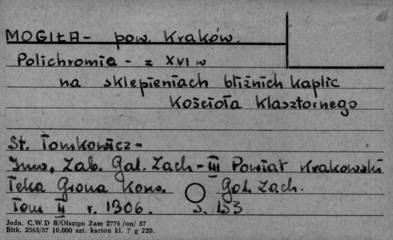 MOGIŁA - pow. Kraków.
Polichromia - z XVI w
na sklepieniach bliźnich kaplic
Kościoła klasztornego
St. Tomkowicz -
Inw. Zab. Gal. Zach - III Powiat Krakowski
Teka Grona Kons. Gal. Zach.
Tom II r. 1906. s. 133
Jedn. C.W.D B/Olsztyn Zam 2776 /on/ 57
Bltk. 2563/57 10.000 szt. karton kl. 7 g 220.